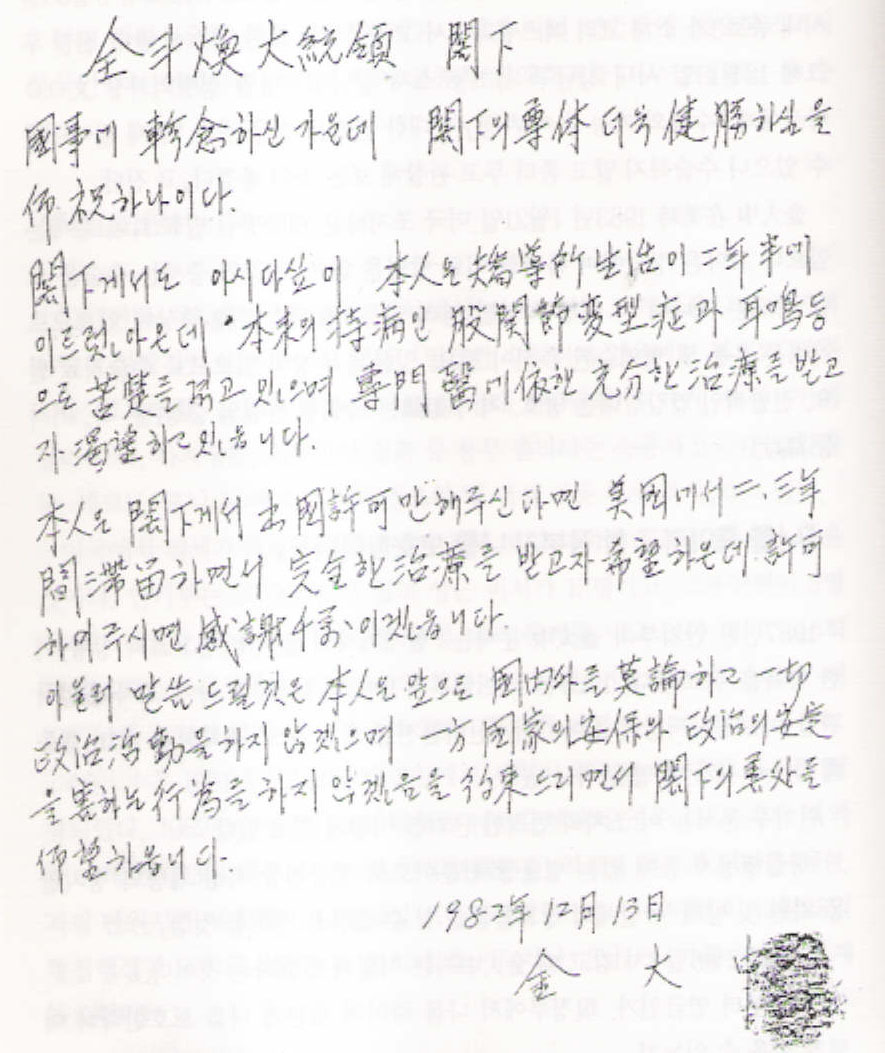 全斗煥大統領 閣下
國事에 軫念하신 가운데 閣下의 尊体 더욱 健勝하심을
仰祝하나이다.
閣下께서도 아시다싶이 本人은 矯導所 生活이 二年半에
이르렀아온데 本来의 持病인 股関節変型症과 耳鳴등
으로 苦楚를 겪고 있으며 專門醫에 依한 充分한 治療를 받고
자 渴望하고 있읍니다.
本人은 閣下께서 出國許可만 해주신다면 美國에서 二、三年
間 滯留하면서 完全한 治療를 받고자 希望하온데 許可
하여 주시면 感謝千萬이겠읍니다.
아울러 말씀드릴것은 本人은 앞으로 國内外를 莫論하고 一切
政治活動을 하지 않겠으며 一方 國家의 安保와 政治의 安定
을 害하는 行爲를 하지 않겠음을 約束드리면서 閣下의 善処를
仰望하옵니다.
1982年 12月 13日
金 大 中